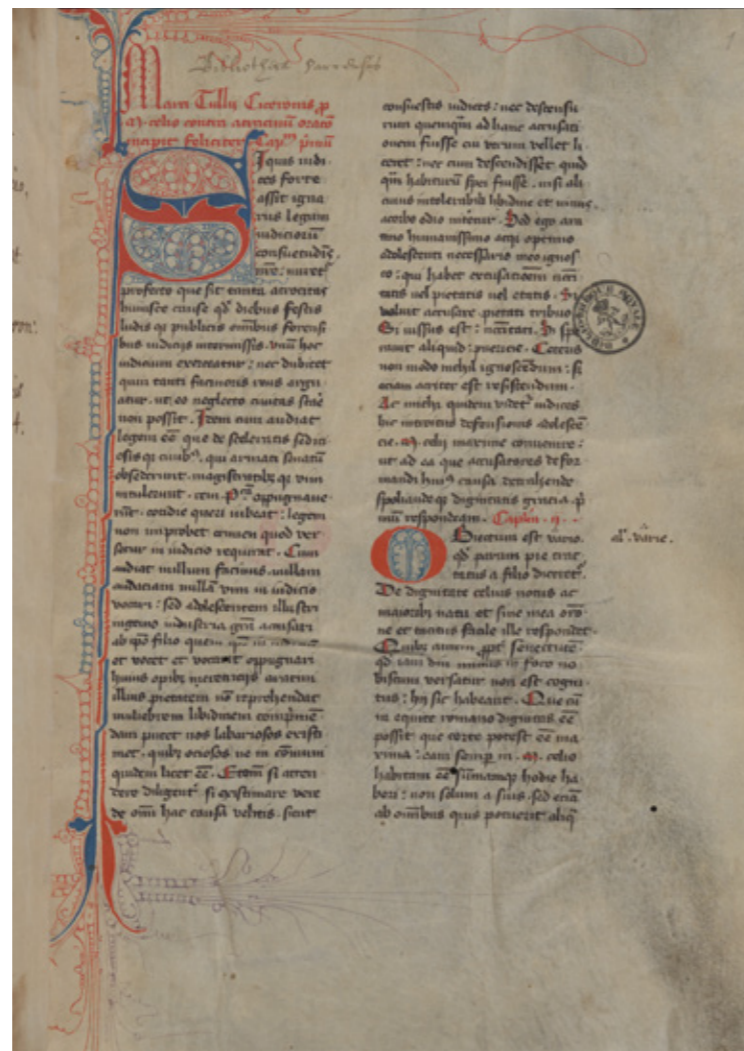 Marci Tullii Ciceronis p̱
M. celio contra atracinū oracō
incipit feliciter Capᵐ pͥmū
Siquis iudi
ces forte
assit igna
rus legum
iudiciorū
consuetudis
nr̄e: miret᷑
profecto que sit tanta atrocitas
huiusce cause qd̛ diebus festis
ludis qꝫ publicis omībus foren
bus iudiciis intermissis. unū hoc
iudicium exerceatur: nec dubitet
quin tanti facinoris reus argu
atur. ut eo neglecto ciuitas stare
non possit. Idem cum audiat
legem eē que de sceleratis sedici
osis qꝫ ciuibꝰ. qui armati senatū
obsederunt. magistratibꝫ qꝫ uim
intulerunt. rem. p. oppugnaue
rūt. cotidie queri iubeat: legem
non improbet crimen quod ver
setur in iudicio requirat. Cum
audiat nullum facinus. nullam
audaciam nullā vim in iudicio
vocari: sed adolescentem illustri
ingenio industria grā accusari
ab eo filio quem
et vocet et vocarit oppugnari
huius opibꝫ meretriciis
illius pietatem nō reprehendat
muliebrem libidinem comprimē
dam putet uos laboriosos existi
met. quibꝫ ociosis ne in cōmuni
quidem licet eē. Etenim si atten
dere diligent᷑ si existimare vere
de omī hac causa velitis. sicut
consuestis iudices: nec descensu
rum quemqm̄ ad hanc accusati
onem fuisse cui utrum vellet li
ceret: nec cum descendisset quid
qm̄ habiturū spei fuisse. nisi ali
cuius intolerabili libidine et nimis
acerbo odio niteretur. Sed ego atra
tino humanissimo atqꝫ optimo
adolescenti necessario meo ignos
co: qui habet excusationem necēi
tatis vel pietatis vel etatis. Si
voluit accusare pietati tribuo
Si iussus est: necēitati. Si spe
rauit aliquid: puericie. Ceteris
non modo nichil ignoscendum: sꝫ
eciam acriter est resistendum.
Ac michi quidem videt᷑ iudices
hic introitus defensionis adolescē
cie. M. celii maxime conuenire:
ut ad ea que accusatores defor
mandi huiꝰ causa detrahende
spoliande qꝫ dignitatis gracia p̄
mū respondeam. Caplm̄ . ij.
Obiectum est vario.
qd̛ parum pre trac
tatus a filio diceret᷑.
De dignitate celius notus ac
maioribꝫ natu et sine mea orō
ne et tacitus facile ille respondet.
Quibꝫ autem ppt̛ senectutē
qd̛ iam diu minus in foro no
biscum versatur non est cogni
tus: hii sic habeant. Que cū
in equite romano dignitas eē
possit que certe potest eē ma
xima: eam semp̱ in. M. celio
habitam eē summamqꝫ hodie ha
beri: non solum a suis. sed eciā
ab omībus quis potuerit aliqͣ
al᷑. varie.